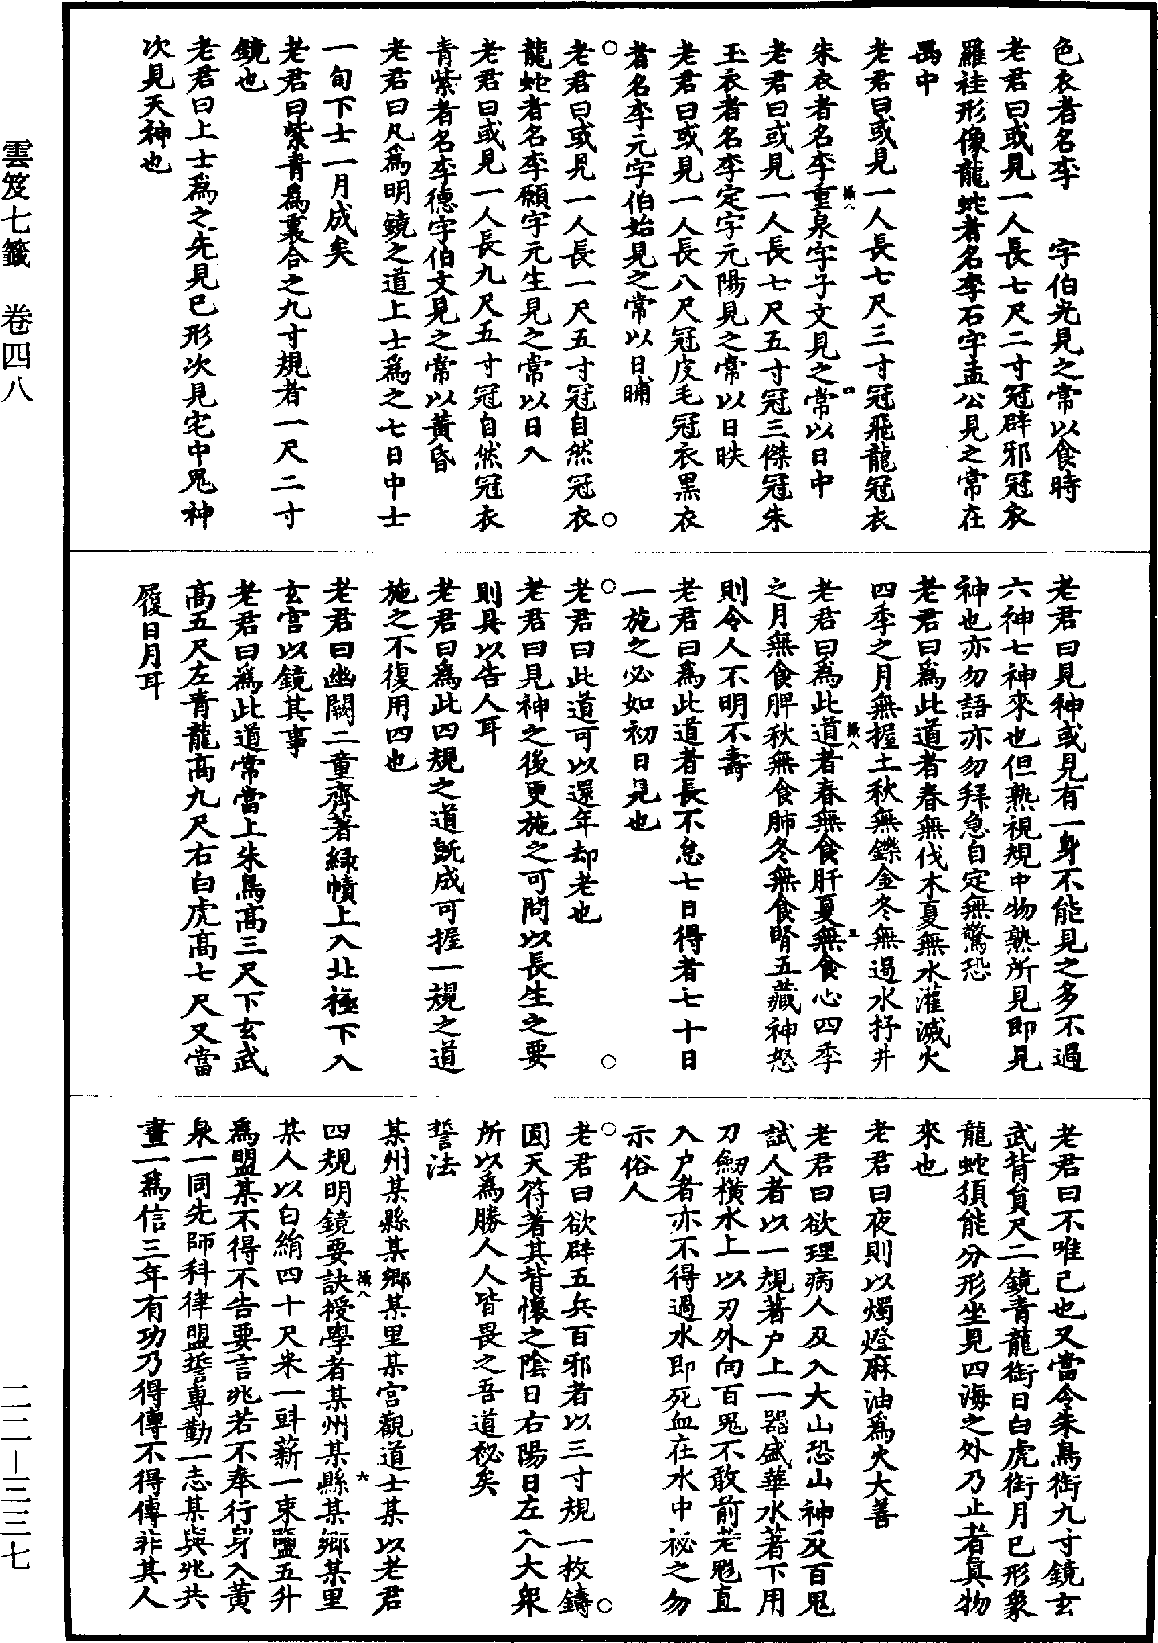 雲笈七籤　卷四八
二二—三三七
色衣者名李　字伯光見之常以食時
老君曰或見一人長七尺二寸冠辟邪冠衣
羅袿形像龍蛇者名李石字孟公見之常在
禺中
老君曰或見一人長七尺三寸冠飛龍冠衣
朱衣者名李重泉字子文見之常以日中
老君曰或見一人長七尺五寸冠三傑冠朱
玉衣者名李定字元陽見之常以日昳
老君曰或見一人長八尺冠皮毛冠衣黑衣
者名李元字伯始見之常以日晡
老君曰或見一人長一尺五寸冠自然冠衣
龍蛇者名李願字元生見之常以日入
老君曰或見一人長九尺五寸冠自然冠衣
青紫者名李德字伯文見之常以黃昏
老君曰凡爲明鏡之道上士爲之七日中士
一旬下士一月成矣
老君曰紫青爲裏合之九寸規者一尺二寸
鏡也
老君曰上士爲之先見已形次見宅中鬼神
次見天神也
老君曰見神或見有一身不能見之多不過
六神七神來也但熟視規中物熟所見即見
神也亦勿語亦勿拜急自定無驚恐
老君曰爲此道者春無伐木夏無水灌滅火
四季之月無握土秋無鑠金冬無遏水抒井
老君曰爲此道者春無食肝夏無食心四季
之月無食脾秋無食肺冬無食腎五藏神怒
則令人不明不壽
老君曰爲此道者長不怠七日得者七十日
一施之必如初日見也
老君曰此道可以還年却老也
老君曰見神之後更施之可問以長生之要
則具以告人耳
老君曰爲此四規之道既成可握一規之道
施之不復用四也
老君曰幽闕二童齊著緑幘上入北極下入
玄宮以鏡其事
老君曰爲此道常當上朱鳥高三尺下玄武
高五尺左青龍高九尺右白虎高七尺又當
履日月耳
老君曰不唯已也又當令朱鳥銜九寸鏡玄
武背負尺二鏡青龍銜日白虎銜月已形象
龍蛇須能分形坐見四海之外乃止者真物
來也
老君曰夜則以燭燈麻油爲火大善
老君曰欲理病人及入大山恐山神及百鬼
試人者以一規著户上一器盛華水著下用
刀劒橫水上以刃外向百鬼不敢前老魅直
入户者亦不得過水即死血在水中祕之勿
示俗人
老君曰欲辟五兵百邪者以三寸規一枚鑄
圓天符著其背懷之陰日右陽日左入大衆
所以爲勝人人皆畏之吾道祕矣
誓法
某州某縣某鄉某里某宮觀道士某以老君
四規明鏡要訣授學者某州某縣某鄉某里
某人以白絹四十尺米一斗薪一束鹽五升
爲盟某不得不告要言兆若不奉行身入黃
泉一同先師科律盟誓專勤一志某與兆共
畫一爲信三年有功乃得傳不得傳非其人